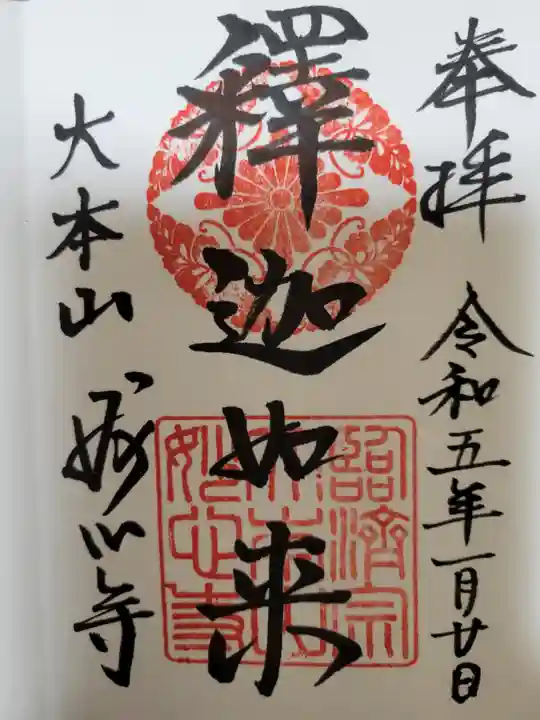 奉拝 令和五年一月廿日
釋迦如来
大本山 妙心寺
臨濟宗
妙心寺